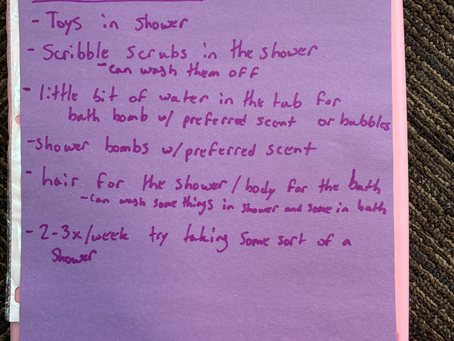 - Toys in shower
- Scribble scrubs in the shower
- can wash them off
- little bit of water in the tub for
bath bomb w/ preferred scent or bubbles
- shower bombs w/ preferred scent
- hair for the shower / body for the bath
- can wash some things in shower and some in bath
- 2-3x/week try taking some sort of a
shower